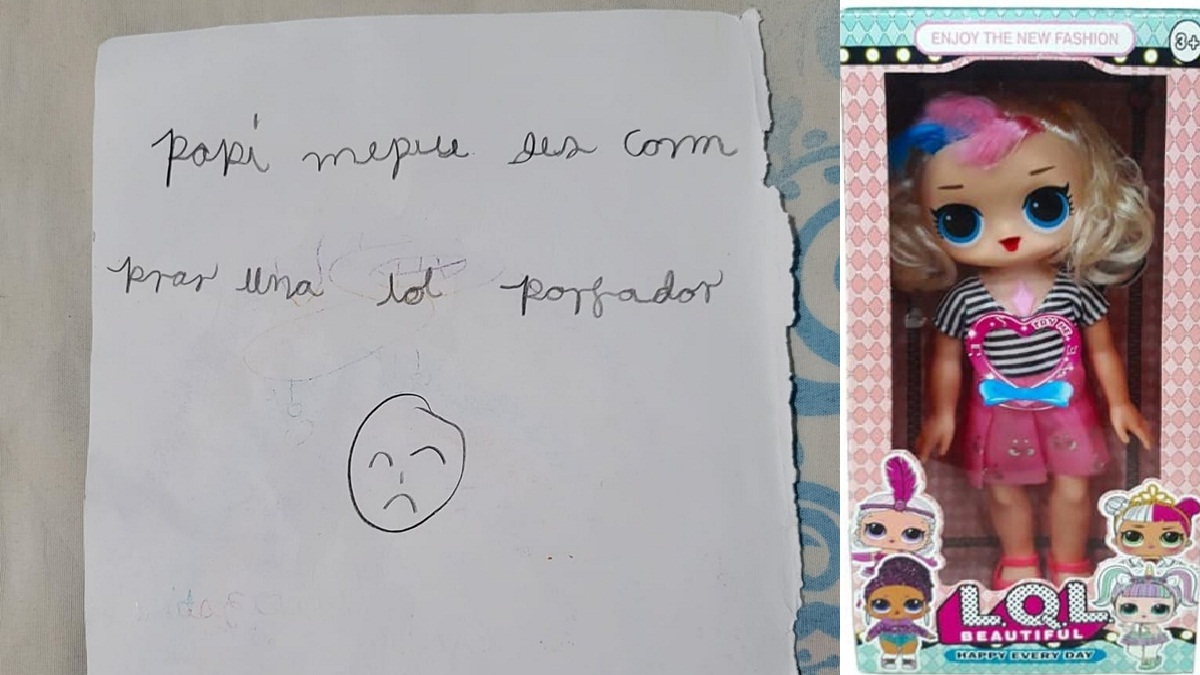 papi mepue des com
prar una lol porfador
ENJOY THE NEW FASHION
3+
TRY ME
L.Q.L.
BEAUTIFUL
HAPPY EVERY DAY